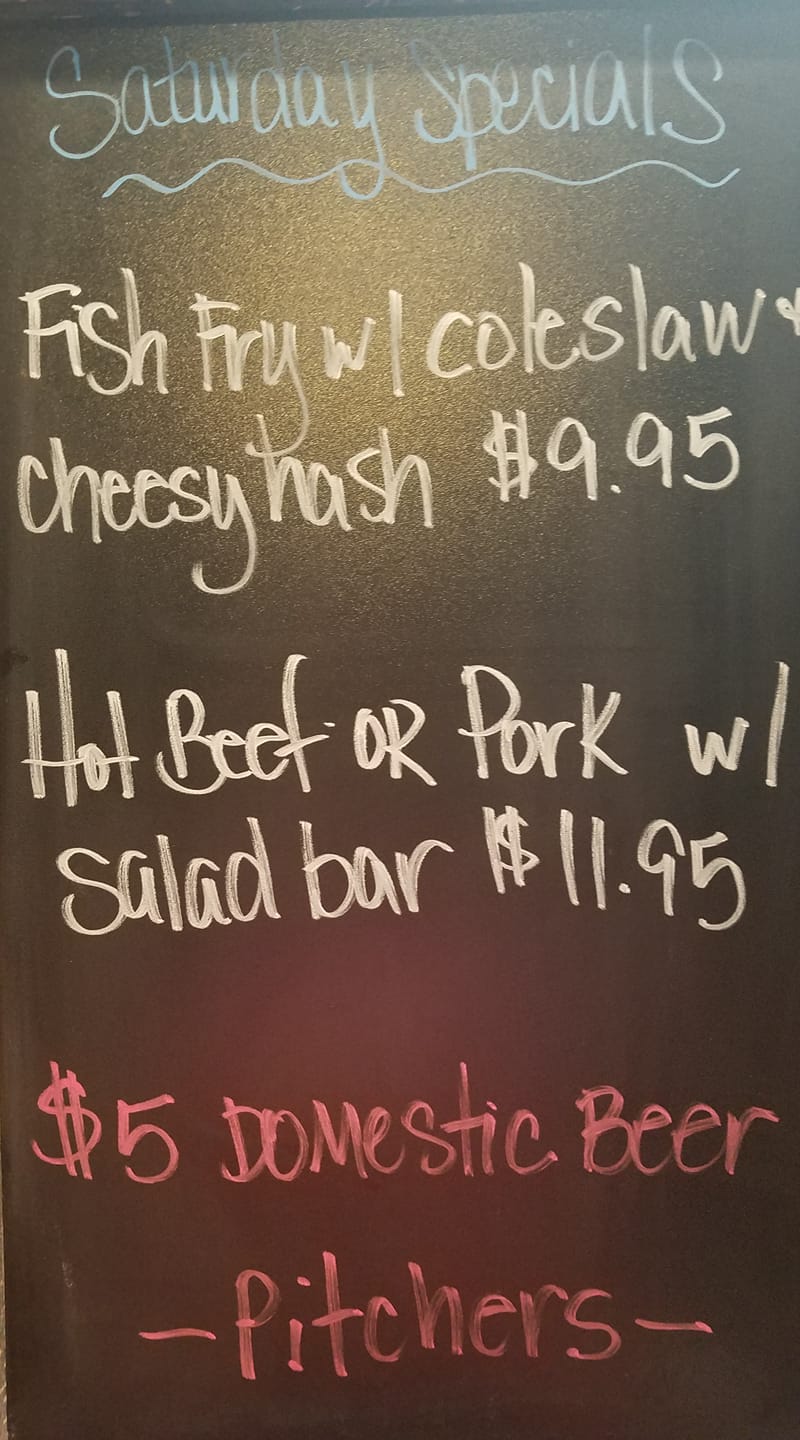 Saturday Specials
Fish Fry w/ coleslaw &
cheesy hash $9.95
Hot Beef OR Pork w/
salad bar $11.95
$5 Domestic Beer
- Pitchers -